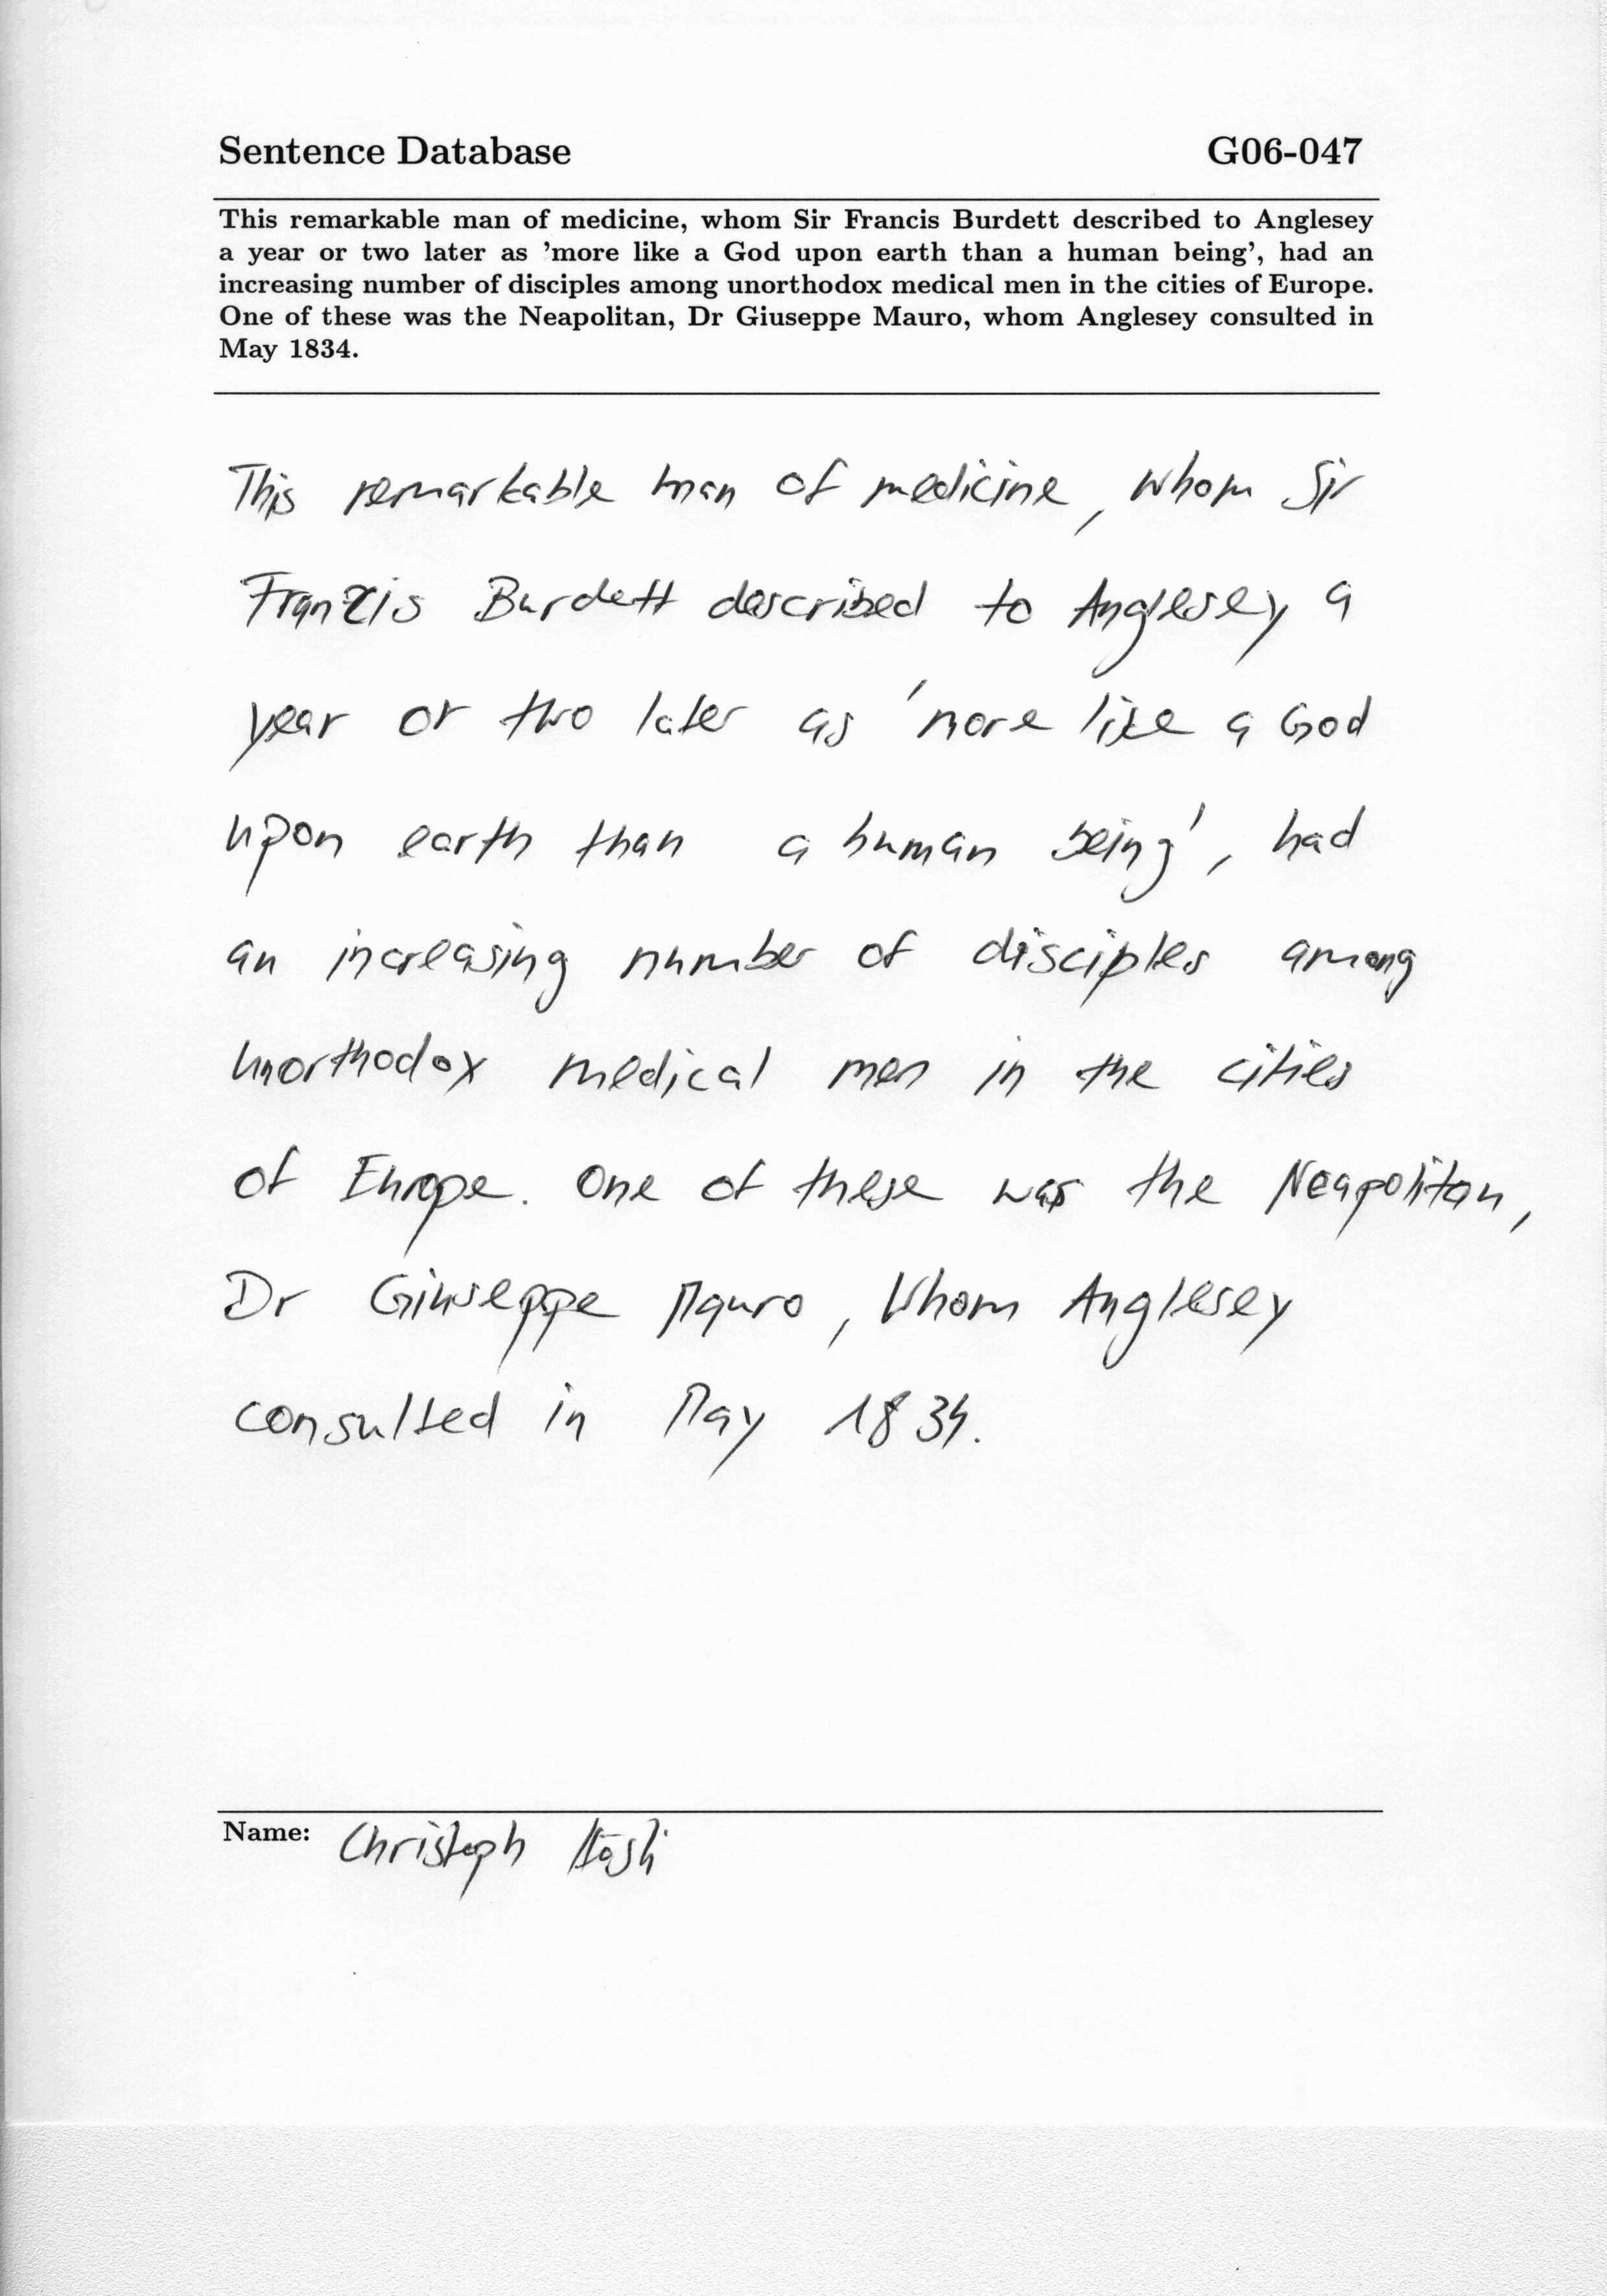 Sentence Database G06-047
This remarkable man of medicine, whom Sir Francis Burdett described to Anglesey
a year or two later as 'more like a God upon earth than a human being', had an
increasing number of disciples among unorthodox medical men in the cities of Europe.
One of these was the Neapolitan, Dr Giuseppe Mauro, whom Anglesey consulted in
May 1834.
This remarkable man of medicine, whom Sir
Franzis Burdett described to Anglesey a
year or two later as 'more like a God
upon earth than a human being', had
an increasing number of disciples among
unorthodox medical men in the cities
of Europe. One of these was the Neapolitan,
Dr Giuseppe Mauro, whom Anglesey
consulted in May 1834.
Name: Christoph